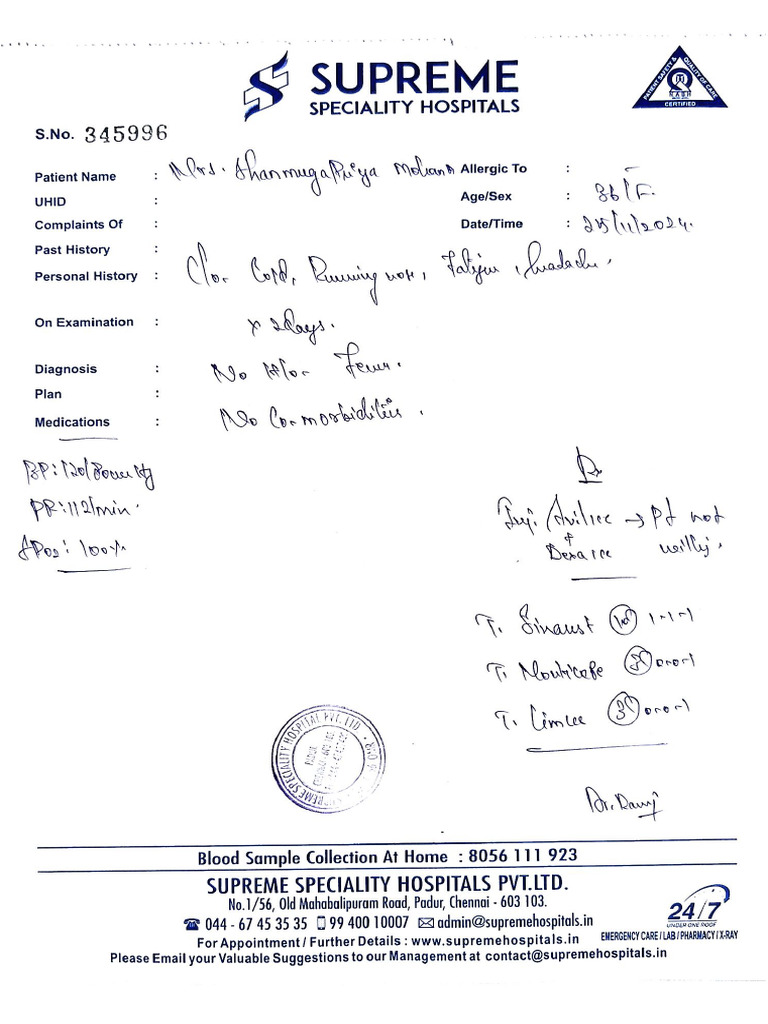 SUPREME
SPECIALITY HOSPITALS
PATIENT SAFETY & QUALITY OF CARE
NABH
CERTIFIED
S.No. 345996
Patient Name : Mrs. Shanmugapriya Mohan
Allergic To : -
UHID :
Age/Sex : 36/F.
Complaints Of :
Date/Time : 25/11/2024.
Past History :
Personal History :
C/o. Cold, Running nose, , headache.
On Examination : x 2 days.
Diagnosis : No H/o Fever.
Plan :
Medications : No Co-morbidities.
BP: 120/80mmHg
PR: 112/min.
SPO2: 100%
Rx
Inj. Avil 1cc → Pt not
+
Dexa 1cc willing.
T. Sinarest 10 1-1-1
T. 0-0-1
T. 0-0-1
Dr.
Blood Sample Collection At Home : 8056 111 923
SUPREME SPECIALITY HOSPITALS PVT.LTD.
No.1/56, Old Mahabalipuram Road, Padur, Chennai - 603 103.
044 - 67 45 35 35 99 400 10007 admin@supremehospitals.in
For Appointment / Further Details : www.supremehospitals.in
Please Email your Valuable Suggestions to our Management at contact@supremehospitals.in
24/7
UNDER ONE ROOF
EMERGENCY CARE / LAB / PHARMACY / X-RAY